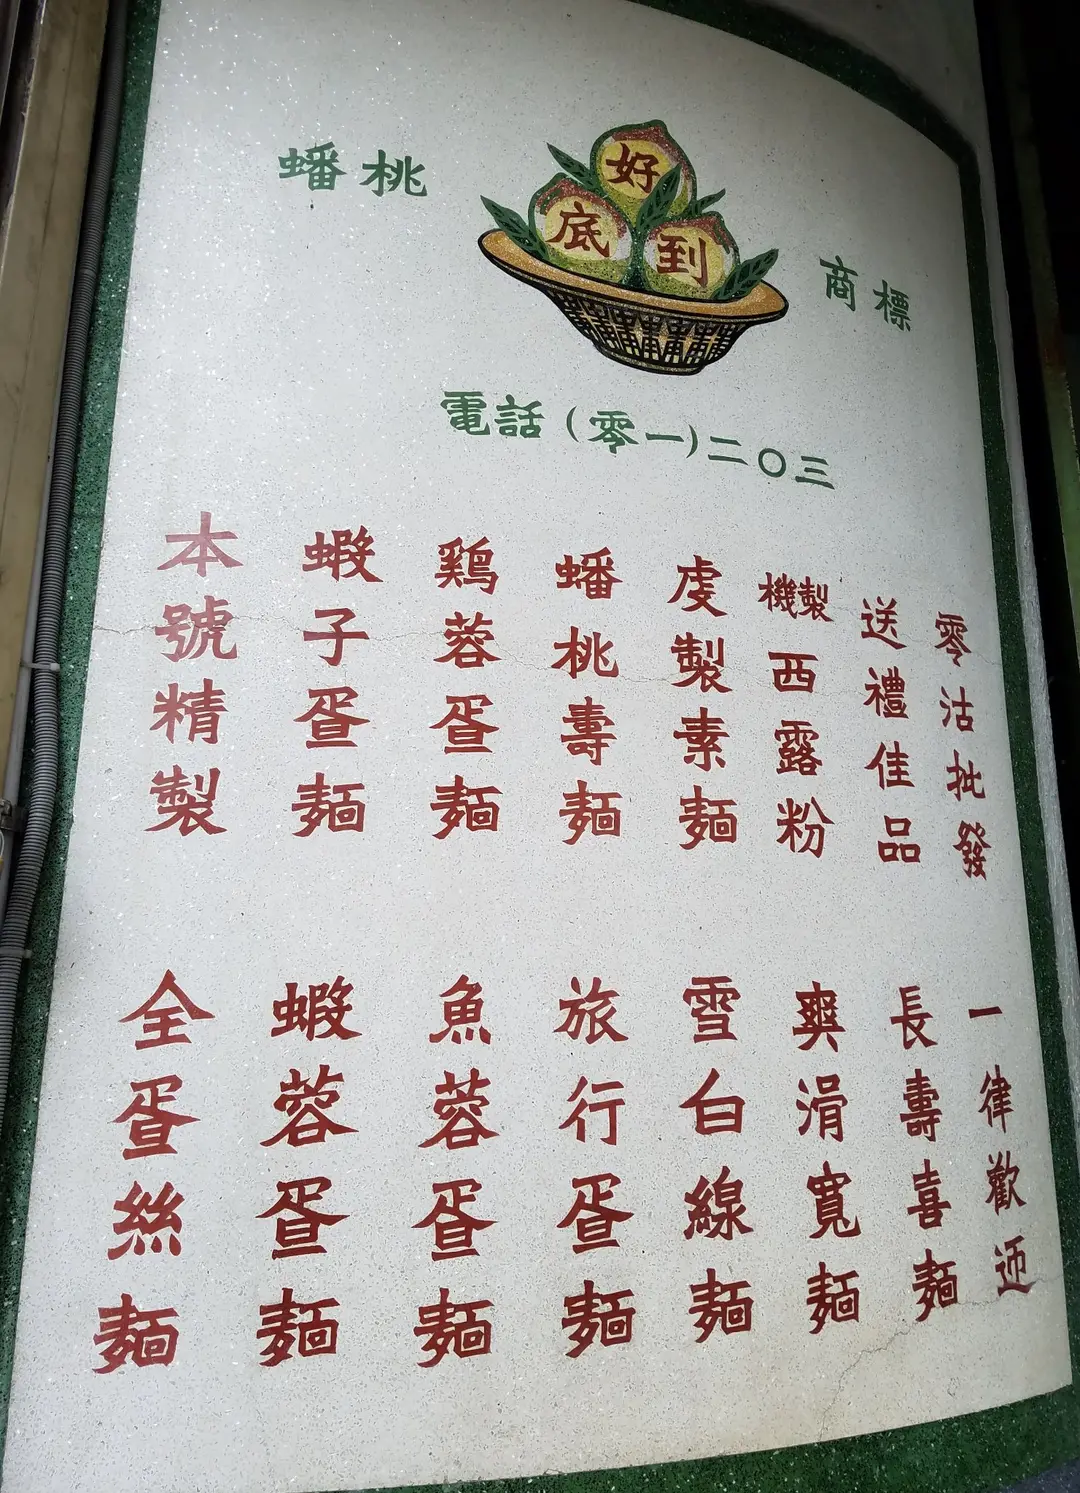 蟠桃
好
到底
商標
電話（零一）二〇三
本號精製
蝦子蛋麵
鷄蓉蛋麵
蟠桃壽麵
虔製素麵
機製西露粉
送禮佳品
零沽批發
全蛋絲麵
蝦蓉蛋麵
魚蓉蛋麵
旅行蛋麵
雪白線麵
爽滑寬麵
長壽喜麵
一律歡迎